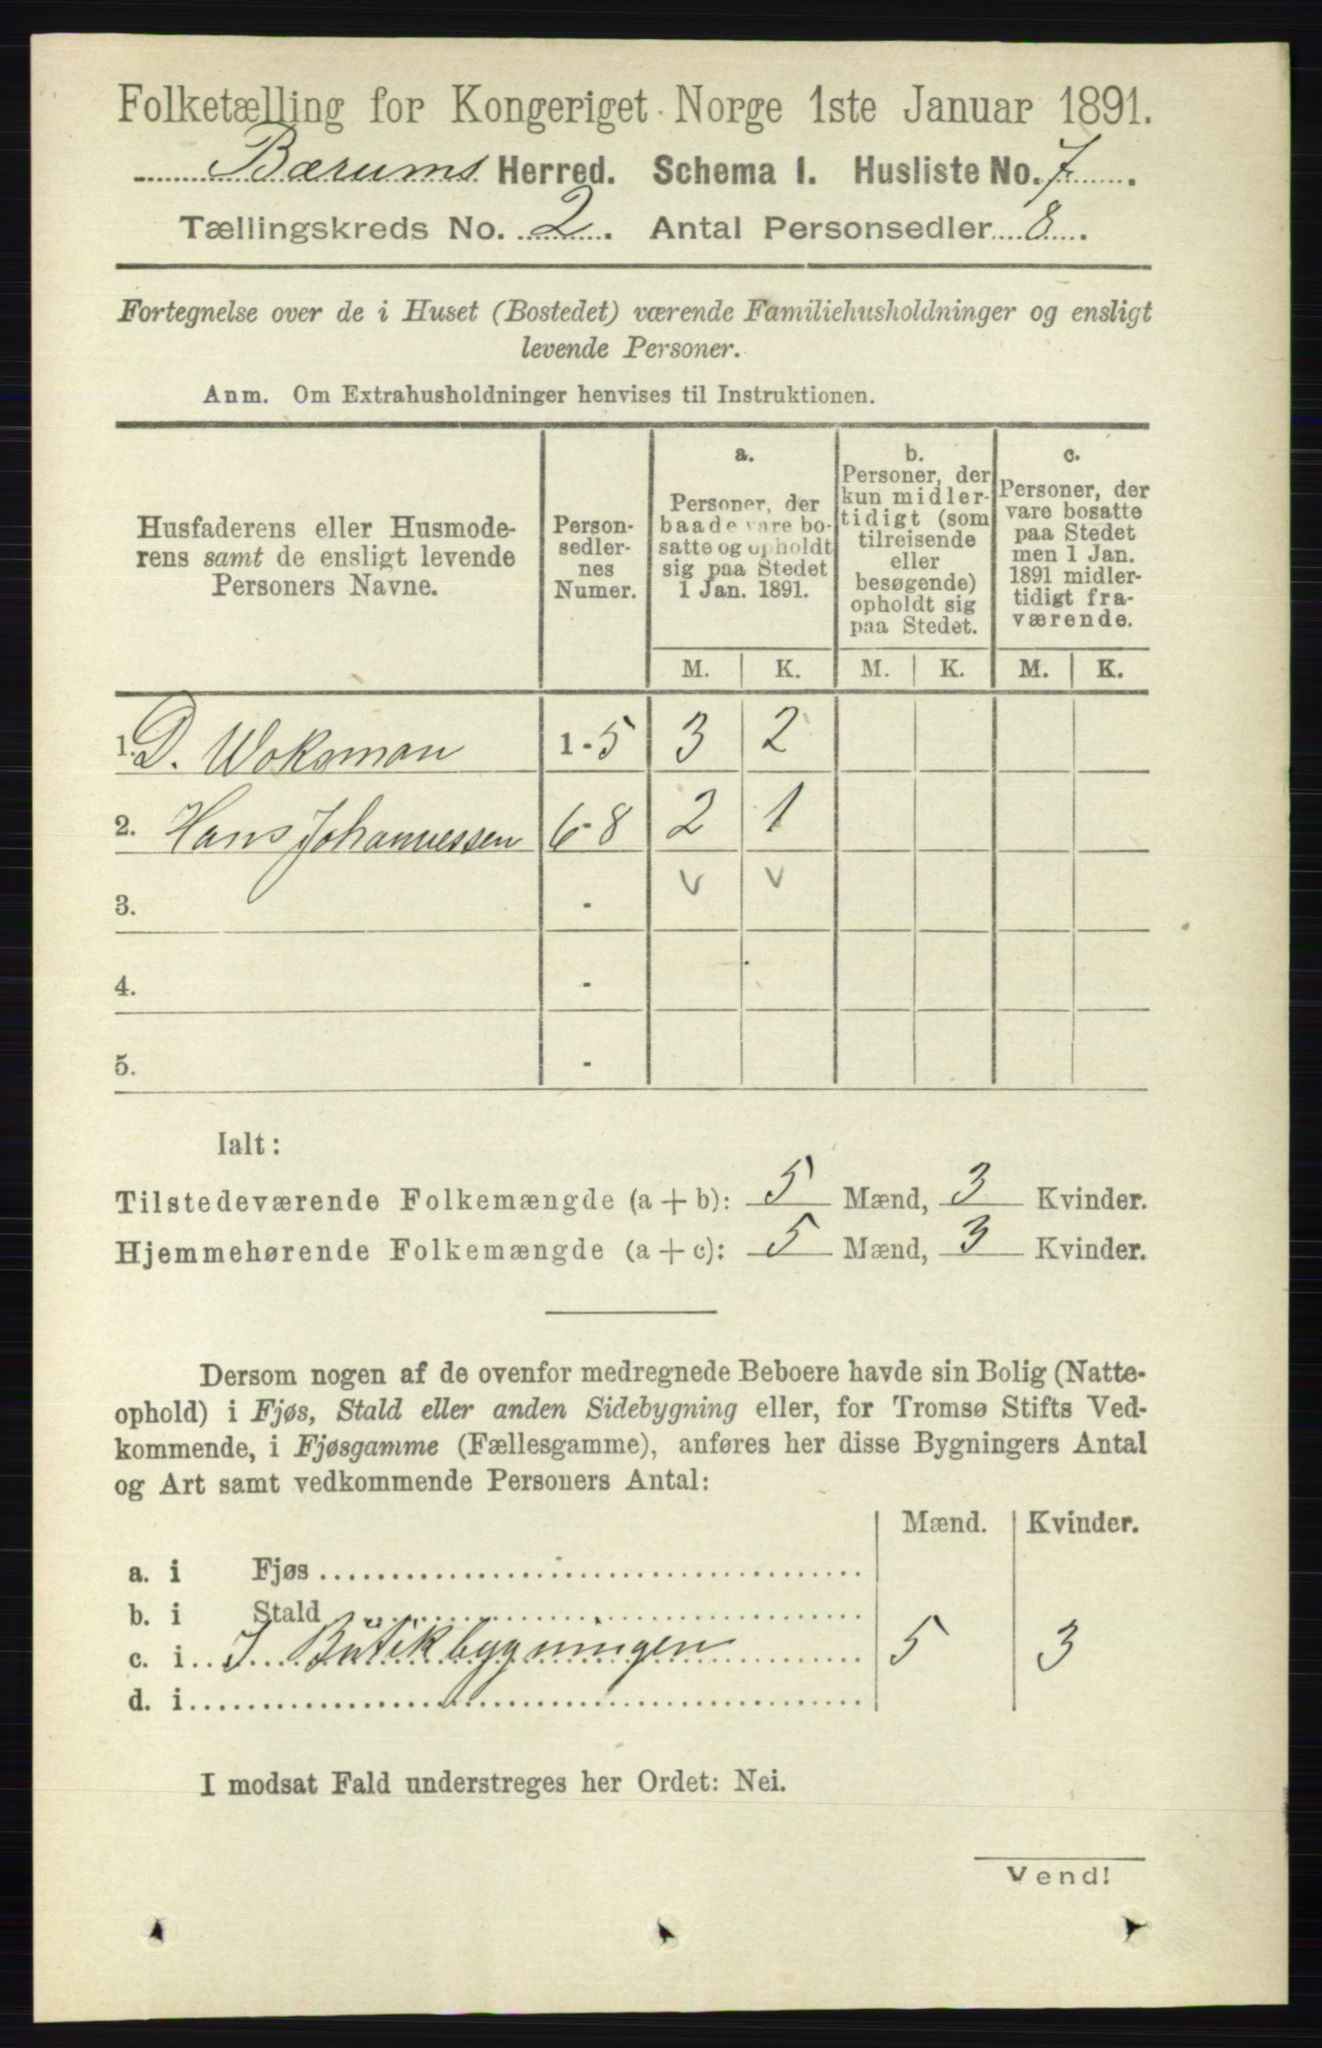 Folketælling for Kongeriget Norge 1ste Januar 1891.
Bærums Herred. Schema I. Husliste No. 7
Tællingskreds No. 2. Antal Personsedler 8.
Fortegnelse over de i Huset (Bostedet) værende Familiehusholdninger og ensligt
levende Personer.
Anm. Om Extrahusholdninger henvises til Instruktionen.
Husfaderens eller Husmode-
rens samt de ensligt levende
Personers Navne.
Person-
sedler-
nes
Numer.
a.
Personer, der
baade vare bo-
satte og opholdt
sig paa Stedet
1 Jan. 1891.
b.
Personer, der
kun midler-
tidigt (som
tilreisende
eller
besøgende)
opholdt sig
paa Stedet.
c.
Personer, der
vare bosatte
paa Stedet
men 1 Jan.
1891 midler-
tidigt fra-
værende.
M. K. M. K. M. K.
1. D. Woksman 1-5 3 2
2. Hans Johannessen 6-8 2 1
3. - v v
4. -
5. -
Ialt:
Tilstedeværende Folkemængde (a + b): 5 Mænd, 3 Kvinder.
Hjemmehørende Folkemængde (a + c): 5 Mænd, 3 Kvinder.
Dersom nogen af de ovenfor medregnede Beboere havde sin Bolig (Natte-
ophold) i Fjøs, Stald eller anden Sidebygning eller, for Tromsø Stifts Ved-
kommende, i Fjøsgamme (Fællesgamme), anføres her disse Bygningers Antal
og Art samt vedkommende Personers Antal:
Mænd. Kvinder.
a. i Fjøs
b. i Stald
c. i I Butikbygningen 5 3
d. i
I modsat Fald understreges her Ordet: Nei.
Vend!